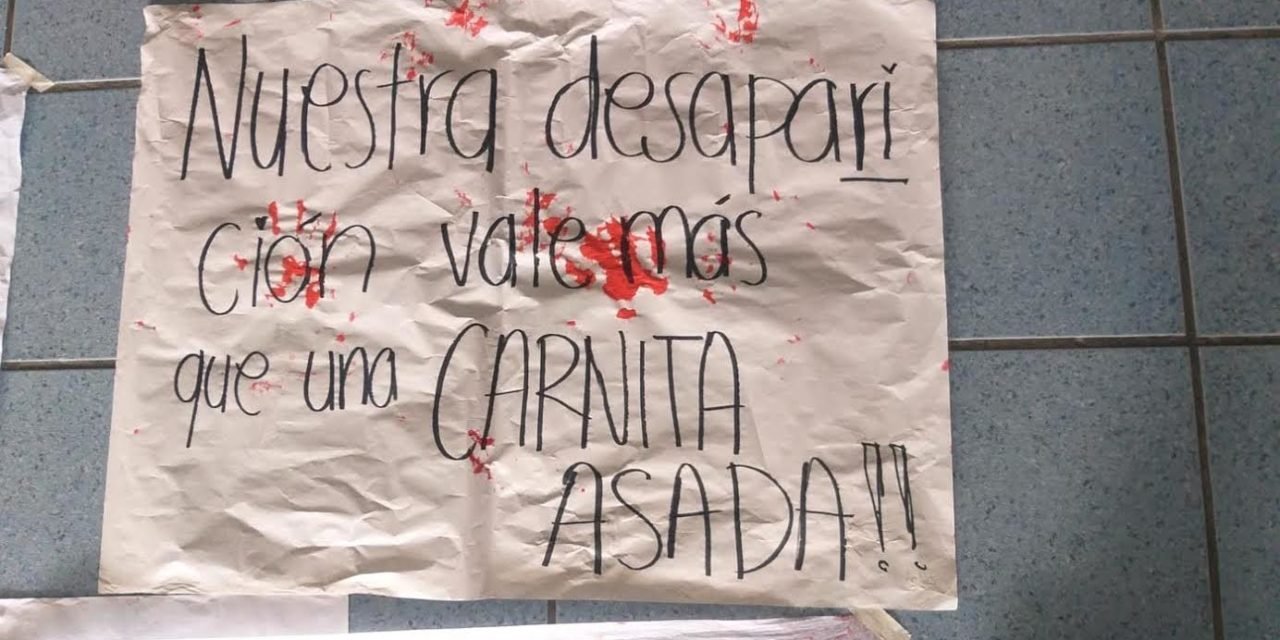 Nuestra desapari
ción vale más
que una CARNITA
ASADA!!